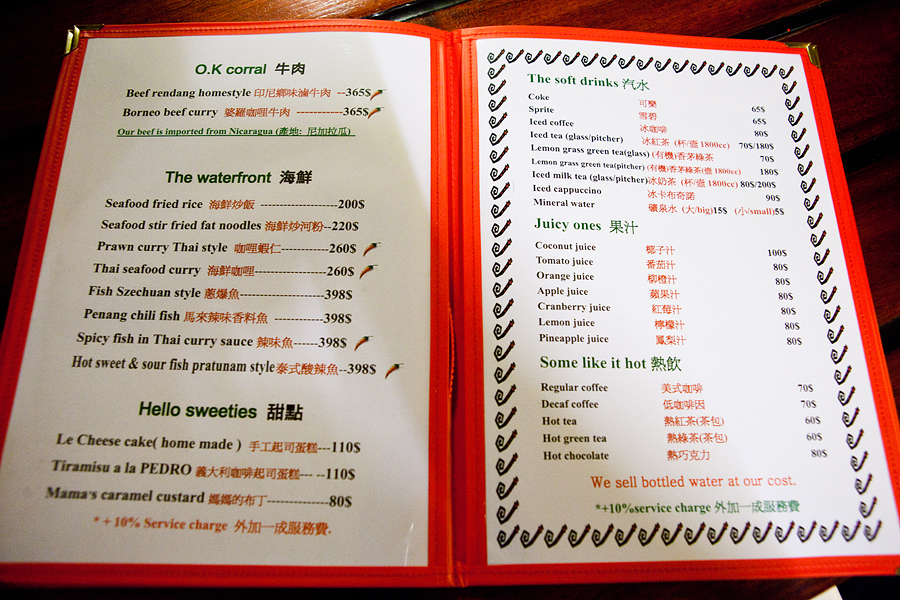 O.K corral 牛肉
Beef rendang homestyle 印尼鄉味滷牛肉 --365$
Borneo beef curry 婆羅咖哩牛肉 ------------365$
Our beef is imported from Nicaragua (產地: 尼加拉瓜)
The waterfront 海鮮
Seafood fried rice 海鮮炒飯 --------------200$
Seafood stir fried fat noodles 海鮮炒河粉--220$
Prawn curry Thai style 咖哩蝦仁-------------260$
Thai seafood curry 海鮮咖哩-------------------260$
Fish Szechuan style 蔥爆魚----------------------398$
Penang chili fish 馬來辣味香料魚 -------------398$
Spicy fish in Thai curry sauce 辣味魚------398$
Hot sweet & sour fish pratunam style泰式酸辣魚--398$
Hello sweeties 甜點
Le Cheese cake( home made ) 手工起司蛋糕---110$
Tiramisu a la PEDRO 義大利咖啡起司蛋糕--- --110$
Mama's caramel custard 媽媽的布丁---------------80$
*+ 10% Service charge 外加一成服務費.
The soft drinks 汽水
Coke 可樂 65$
Sprite 雪碧 65$
Iced coffee 冰咖啡 80$
Iced tea (glass/pitcher) 冰紅茶 (杯/壺 1800cc) 70$/180$
Lemon grass green tea(glass) (有機)香茅綠茶 70$
Lemon grass green tea(pitcher) (有機)香茅綠茶(壺 1800cc) 180$
Iced milk tea (glass/pitcher)冰奶茶 (杯/壺 1800cc) 80$/200$
Iced cappuccino 冰卡布奇諾 90$
Mineral water 礦泉水 (大/big)15$ (小/small)5$
Juicy ones 果汁
Coconut juice 椰子汁 100$
Tomato juice 番茄汁 80$
Orange juice 柳橙汁 80$
Apple juice 蘋果汁 80$
Cranberry juice 紅莓汁 80$
Lemon juice 檸檬汁 80$
Pineapple juice 鳳梨汁 80$
Some like it hot 熱飲
Regular coffee 美式咖啡 70$
Decaf coffee 低咖啡因 70$
Hot tea 熱紅茶(茶包) 60$
Hot green tea 熱綠茶(茶包) 60$
Hot chocolate 熱巧克力 80$
We sell bottled water at our cost.
*+10%service charge 外加一成服務費